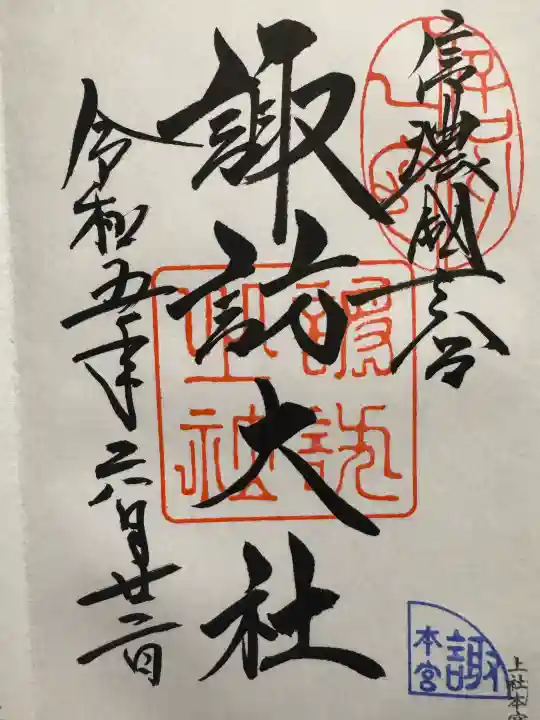 信濃國一宮
諏訪大社
令和五年六月廿二日
諏訪
本宮
諏
上社本宮